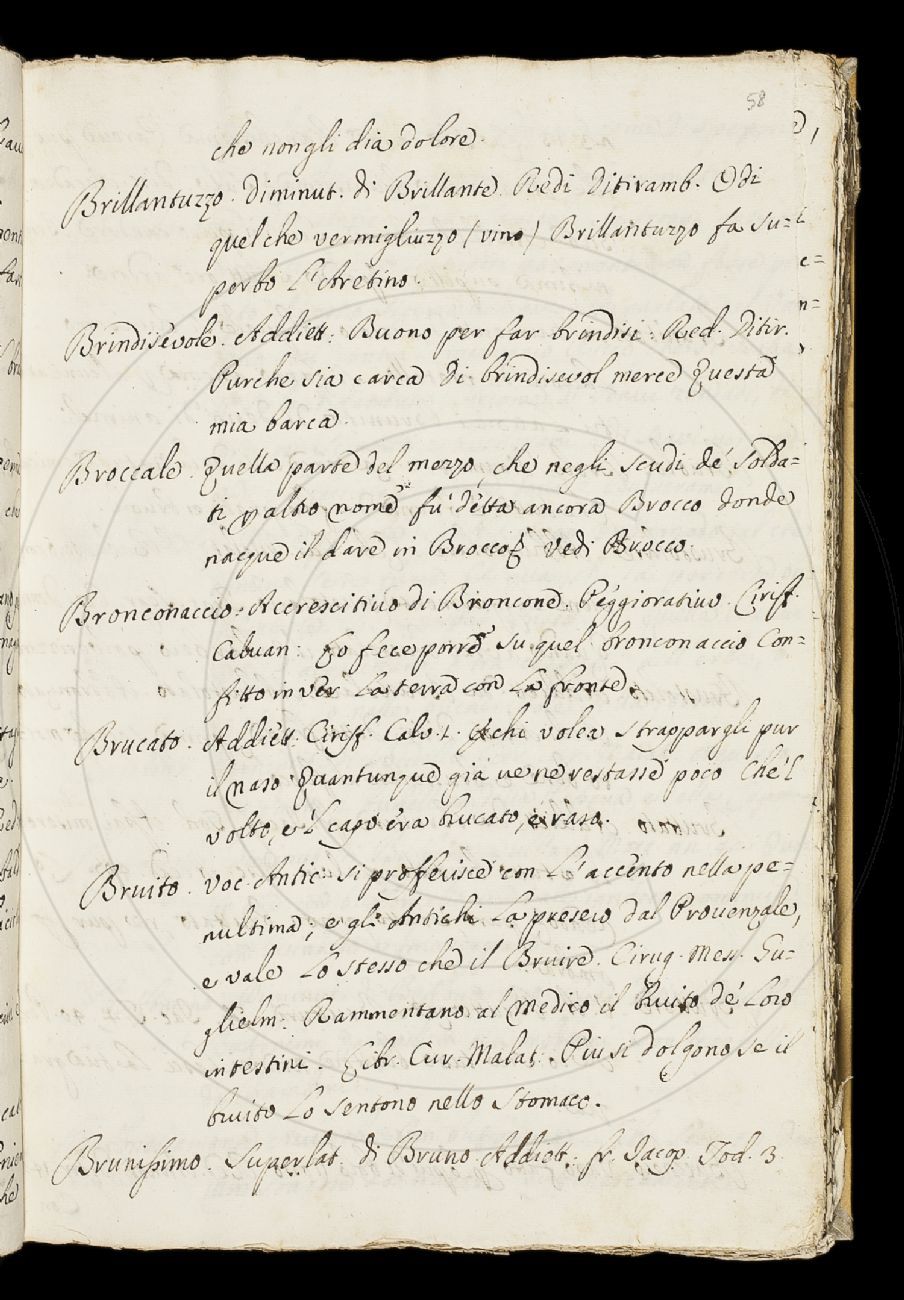 58
che non gli dia dolore.
Brillantuzzo. Diminut. di Brillante. Redi Ditiramb. E di
quel che vermigliuzzo (vino) Brillantuzzo fa su=
perbo L'Aretino.
Brindisevole. Addiett: Buono per far brindisi: Red. Ditir.
Purche sia carca di brindisevol merce Questa
mia barca.
Broccale. Quella parte del mezzo, che negli scudi de' Solda=
ti p altro nome fu detta ancora Brocco donde
nacque il dare in Brocco vedi Brocco.
Bronconaccio. Accrescitivo di Broncone. Peggiorativo. Ciriff.
Calvan: Lo fece porre su quel bronconaccio Con=
fitto in ver La terra con La fronte.
Brucato. Addiett. Ciriff. Calv. 1. chi volea strappargli pur
il naso Quantunque gia ve ne restasse poco Che'l
volto, e'l capo era brucato, e raso.
Bruito. voc. Antic. si profferisce con L'accento nella pe=
nultima; e gli Antichi La presero dal Provenzale,
e vale Lo stesso che il Bruire. Cirug. Mess. Gu=
glielm. Rammentano al Medico il bruito de' Loro
intestini. Libr. Cur. Malat. Piu si dolgono se il
bruito Lo sentono nello Stomaco.
Brunissimo. Superlat. di Bruno Addiett. fr. Jacop. Tod. 3